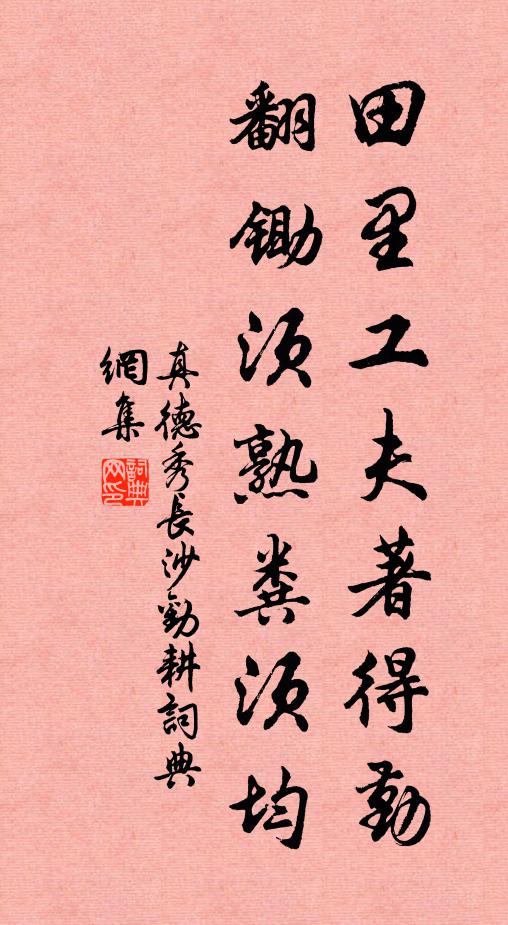 田里工夫著得勤
翻鋤須熟糞須均
真德秀長沙勸耕詞典
網集
詞典网印